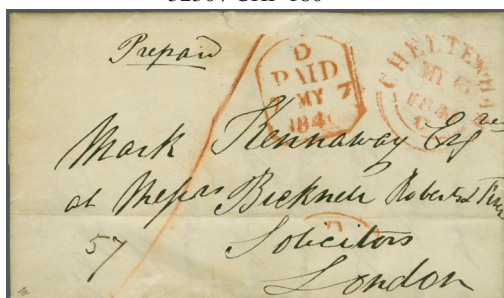 Prepaid
D
PAID
7 MY 7
184
CHELTENH
MY 6
184
Mark Kennaway Esqre
at Messrs Bicknell Roberts &
57
Solicitors
London